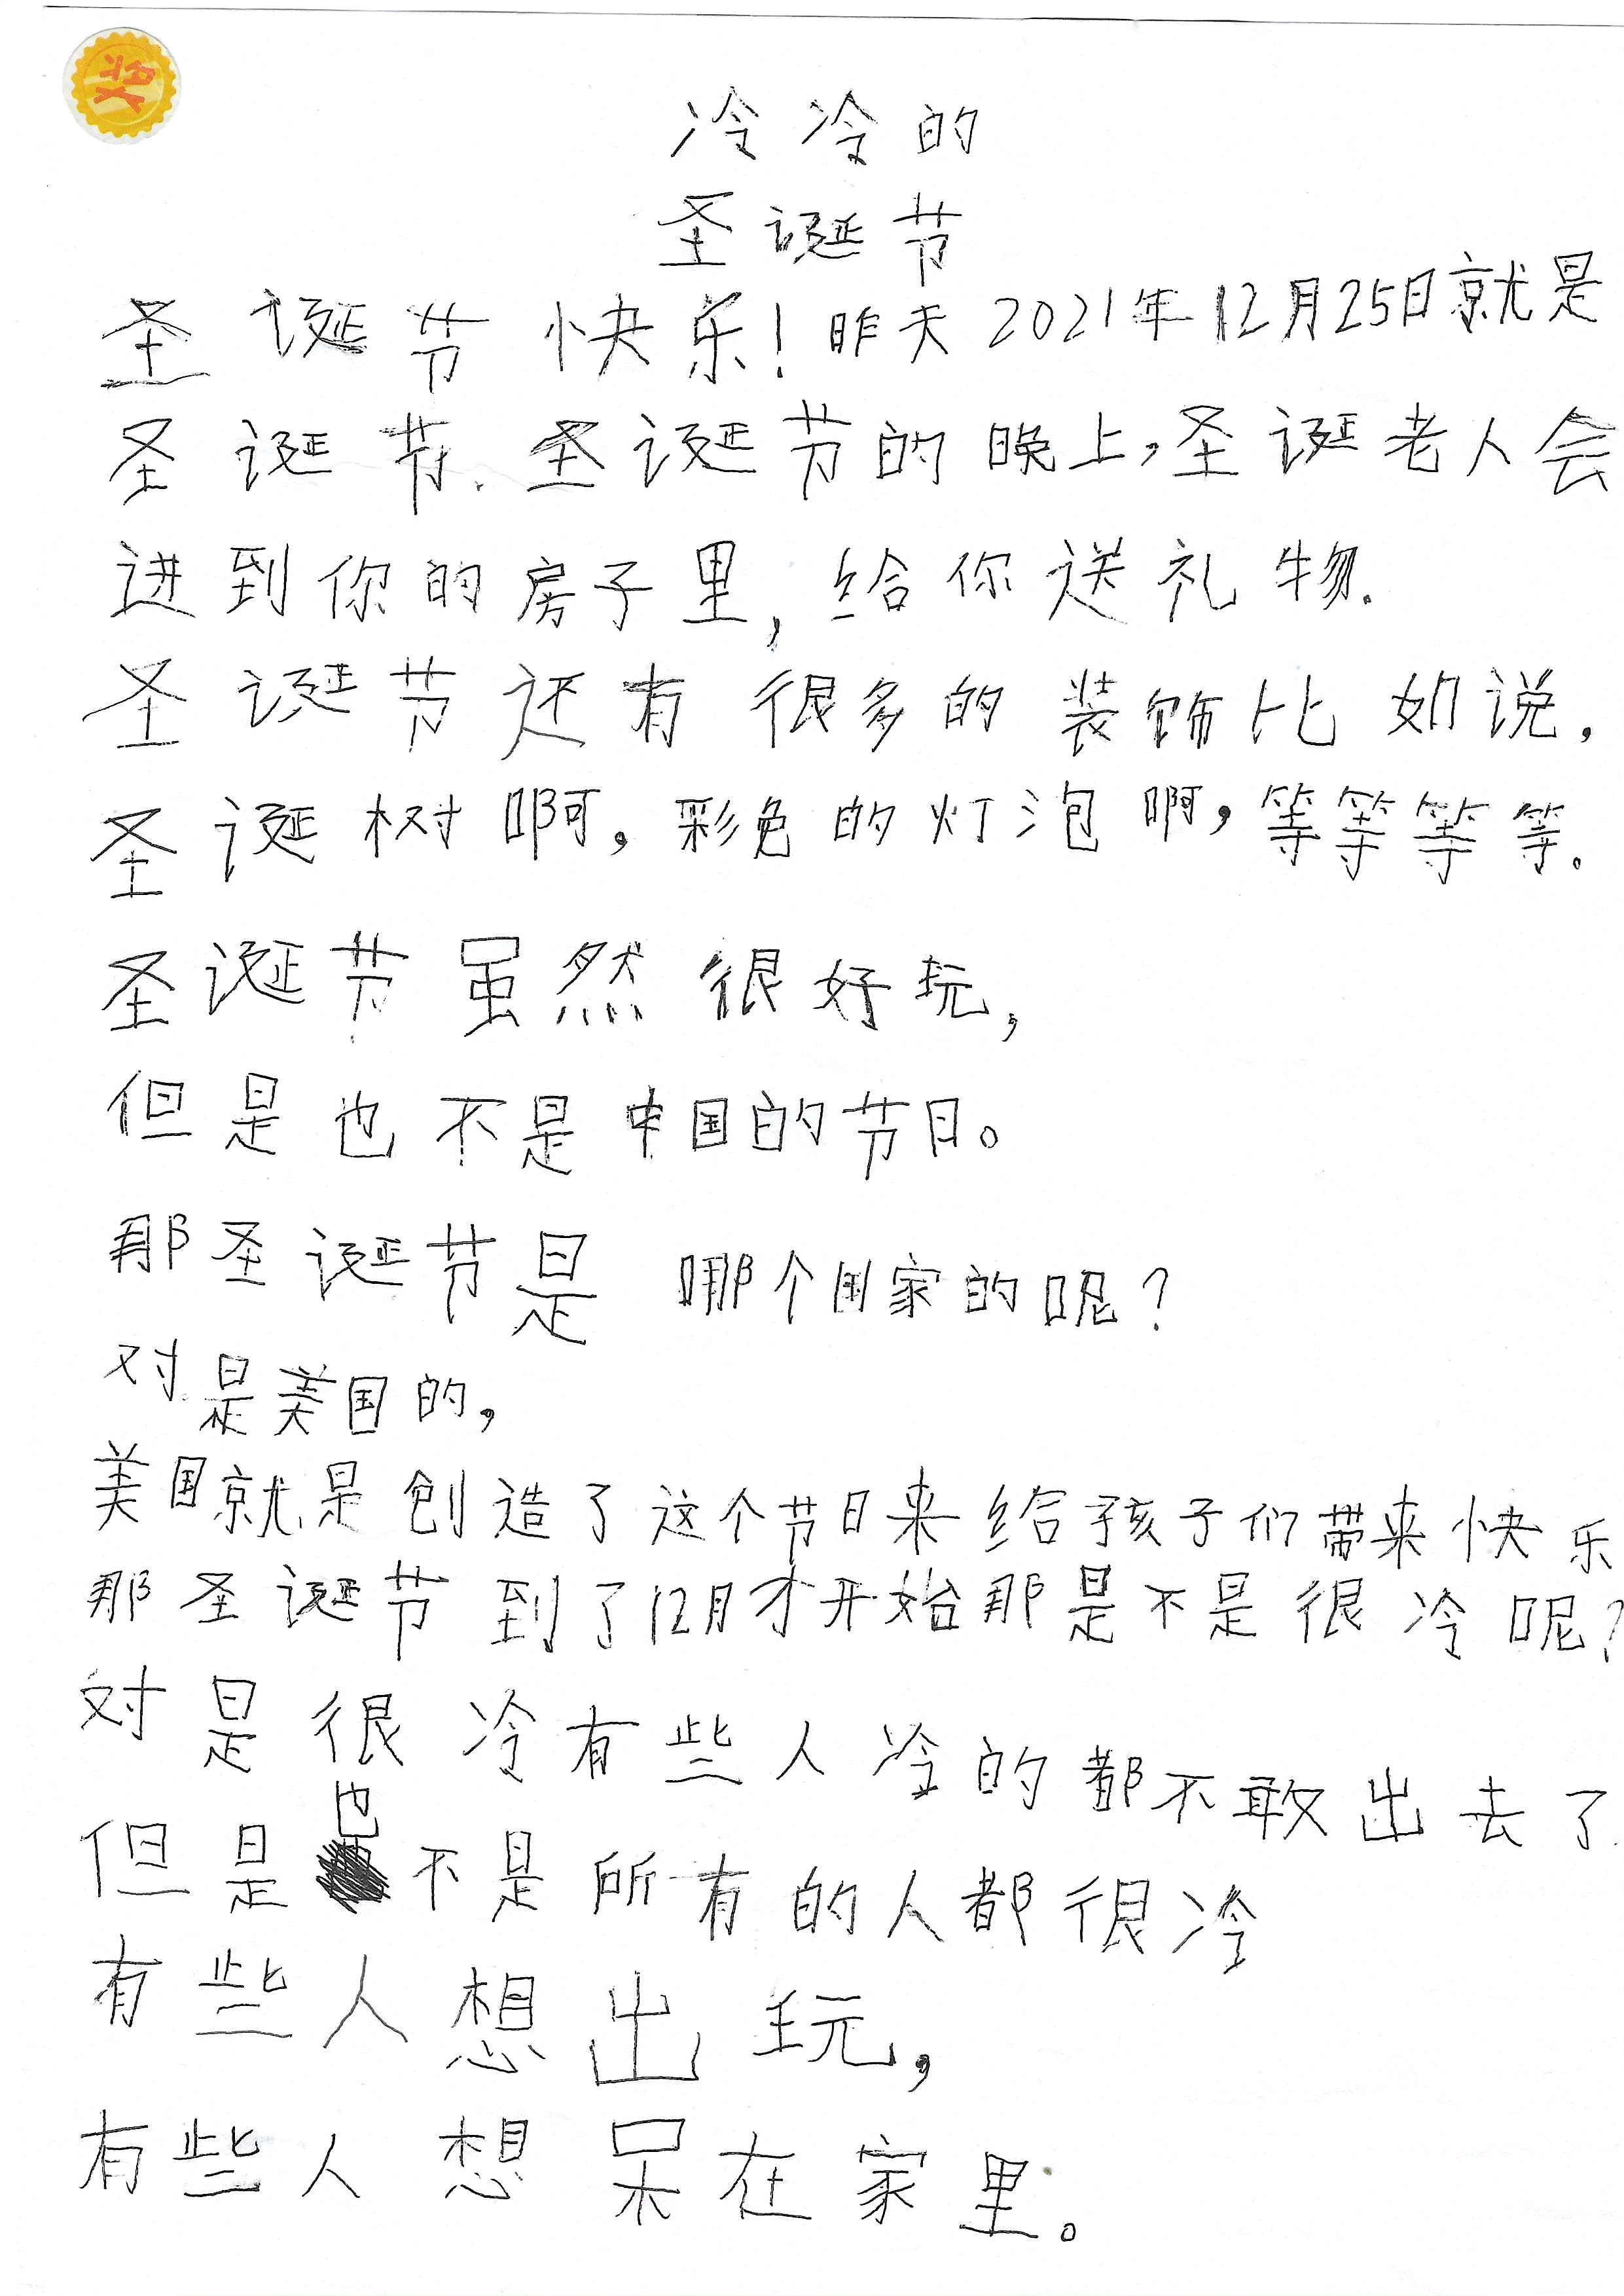 奖
冷冷的
圣诞节
圣诞节快乐!昨天2021年12月25日就是
圣诞节.圣诞节的晚上,圣诞老人会
进到你的房子里,给你送礼物.
圣诞节还有很多的装饰比如说,
圣诞树啊,彩色的灯泡啊,等等等等。
圣诞节虽然很好玩,
但是也不是中国的节日。
那圣诞节是哪个国家的呢?
对是美国的,
美国就是创造了这个节日来给孩子们带来快乐
那圣诞节到了12月才开始那是不是很冷呢?
对是很冷有些人冷的都不敢出去了
但是也不是所有的人都很冷
有些人想出玩,
有些人想呆在家里。